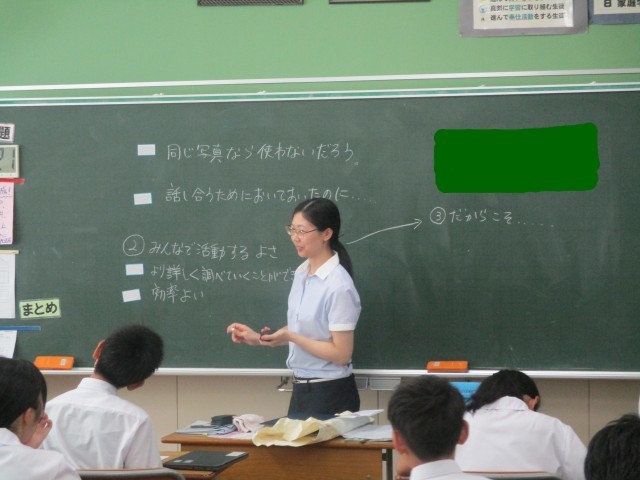 真剣に学習に取り組む生徒
進んで奉仕活動をする生徒
題
同じ写真なら使わないだろう。
話し合うためにおいておいたのに……
②みんなで活動するよさ
③だからこそ……
より詳しく調べていくことがで
効率よい
まとめ